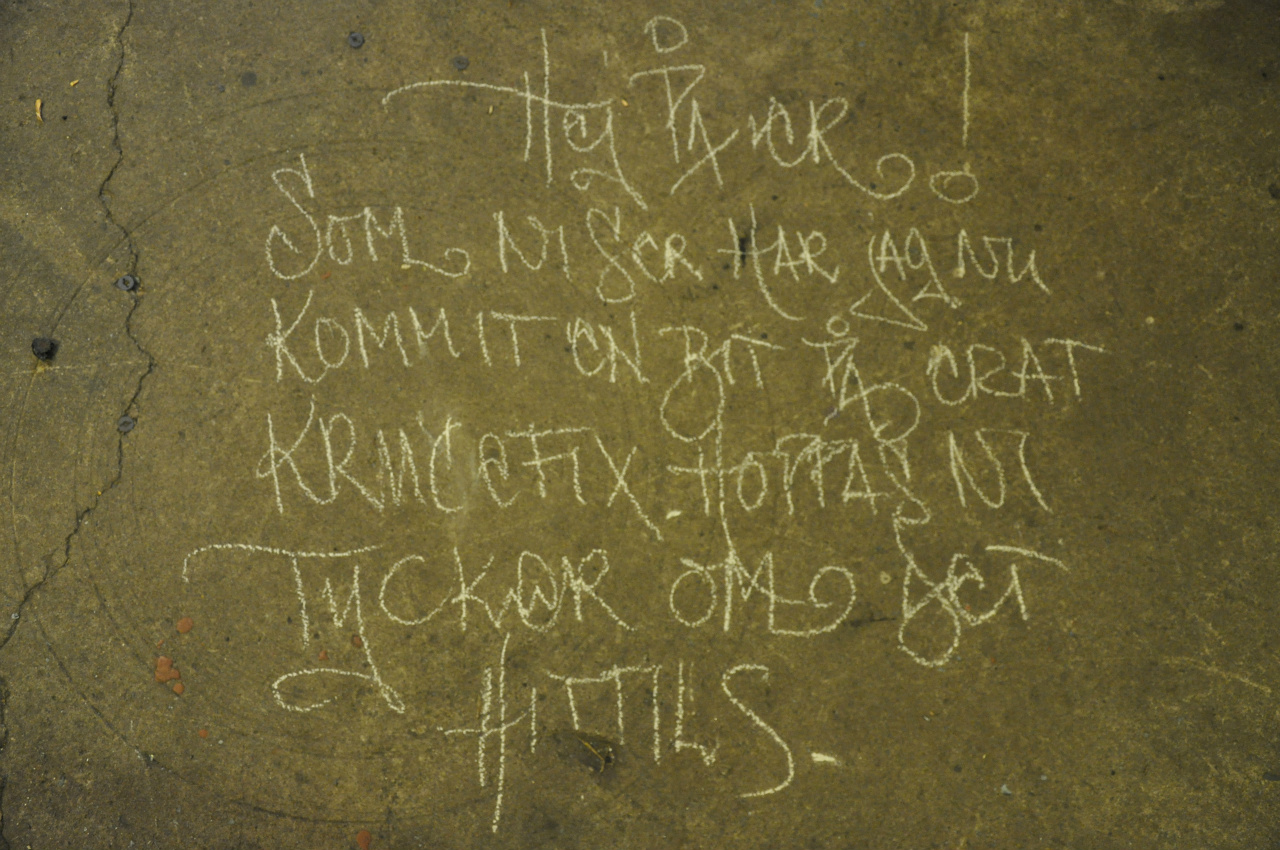 HEJ PÅ ER!
SOM NI SER HAR JAG NU
KOMMIT EN BIT PÅ ERAT
KRUCEFIX. HOPPAS NI
TYCKER OM DET
HITTILS.